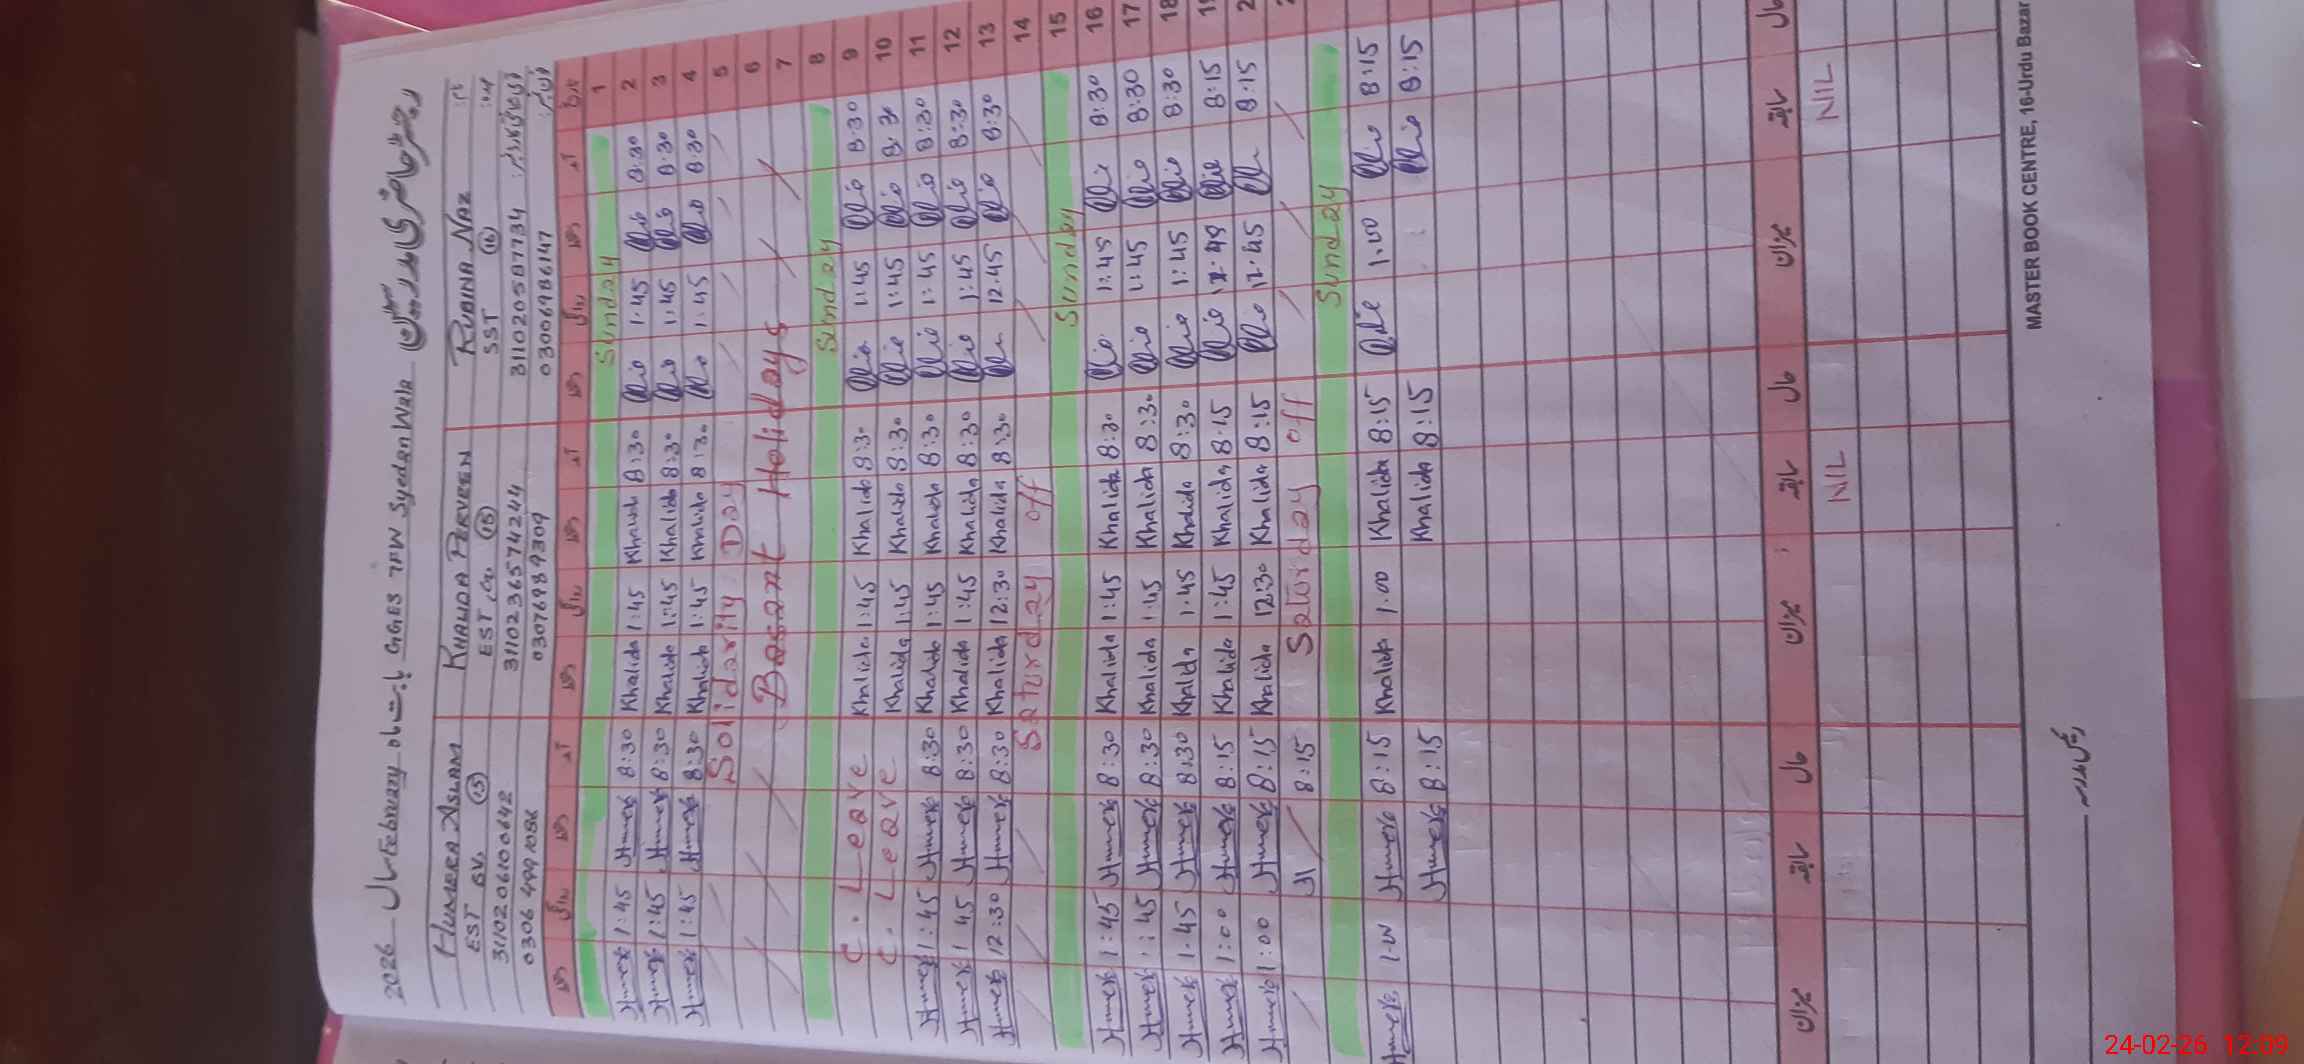 2026 سال February بابت ماہ GGES 7FW Syedan Wala رجسٹر حاضری مدرسین
HUMERA ASLAM KHALIDA PERVEEN RUBINA NAZ
EST SV. (15) EST, (15) SST (16)
3110206100642 3110236574244 3110205877734
0306 4991086 03076989309 03006986147
دستخط روانگی دستخط آمد دستخط روانگی دستخط آمد دستخط روانگی دستخط آمد تاریخ
Sunday 1
Humera 1:45 Humera 8:30 Khalida 1:45 Khalida 8:30 1.45 8:30 2
Humera 1:45 Humera 8:30 Khalida 1:45 Khalida 8:30 1:45 8:30 3
Humera 1:45 Humera 8:30 Khalida 1:45 Khalida 8:30 1:45 8:30 4
Solidarity Day 5
6
Basant Holidays 7
Sunday 8
C. Leave Khalida 1:45 Khalida 8:30 1:45 8:30 9
C. Leave Khalida 1:45 Khalida 8:30 1:45 8:30 10
Humera 1:45 Humera 8:30 Khalida 1:45 Khalida 8:30 1:45 8:30 11
Humera 1 45 Humera 8:30 Khalida 1:45 Khalida 8:30 1:45 8:30 12
Humera 12:30 Humera 8:30 Khalida 12:30 Khalida 8:30 12.45 8:30 13
Saturday off 14
Sunday 15
Humera 1:45 Humera 8:30 Khalida 1:45 Khalida 8:30 1:45 8:30 16
Humera 1:45 Humera 8:30 Khalida 1:45 Khalida 8:30 1:45 8:30 17
Humera 1.45 Humera 8:30 Khalida 1.45 Khalida 8:30 1:45 8:30 18
Humera 1:00 Humera 8:15 Khalida 1:45 Khalida 8.15 8:15
Humera 1:00 Humera 8:15 Khalida 12:30 Khalida 8:15 12.45 8:15
H 8:15 Saturday off
Sunday
Humera Humera 8:15 Khalida 1.00 Khalida 8:15 1.00 8:15
Humera 8:15 Khalida 8:15 8:15
میزان سابقہ حال میزان سابقہ حال میزان سابقہ حال
NIL NIL
MASTER BOOK CENTRE, 16-Urdu Bazar
24-02-26 12:09